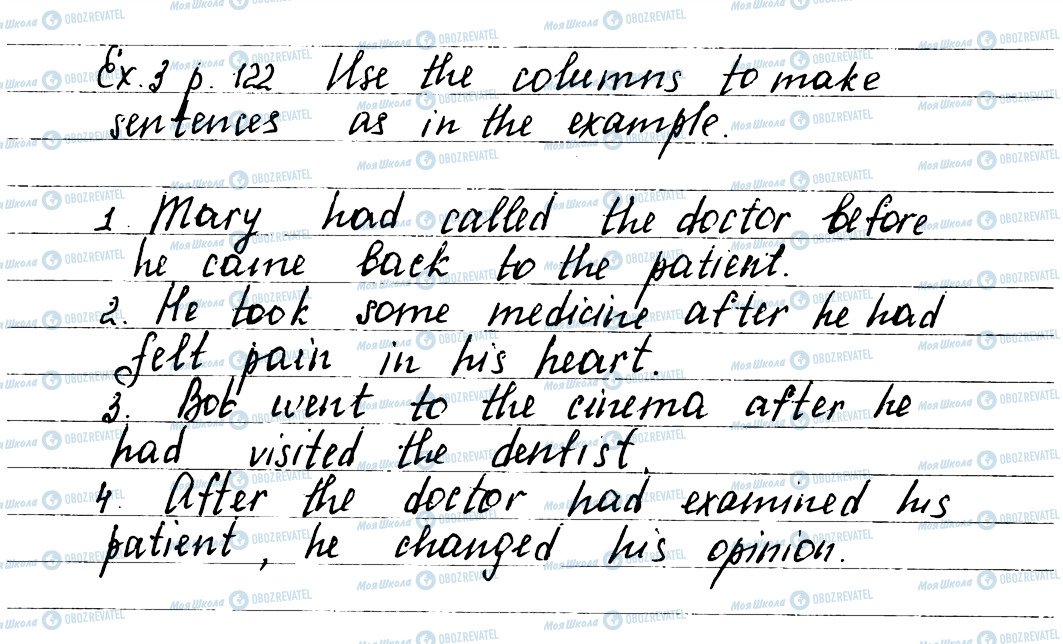 Ex. 3 p. 122 Use the columns to make
sentences as in the example.
1. Mary had called the doctor before
he came back to the patient.
2. He took some medicine after he had
felt pain in his heart.
3. Bob went to the cinema after he
had visited the dentist.
4. After the doctor had examined his
patient, he changed his opinion.
Моя Школа OBOZREVATEL